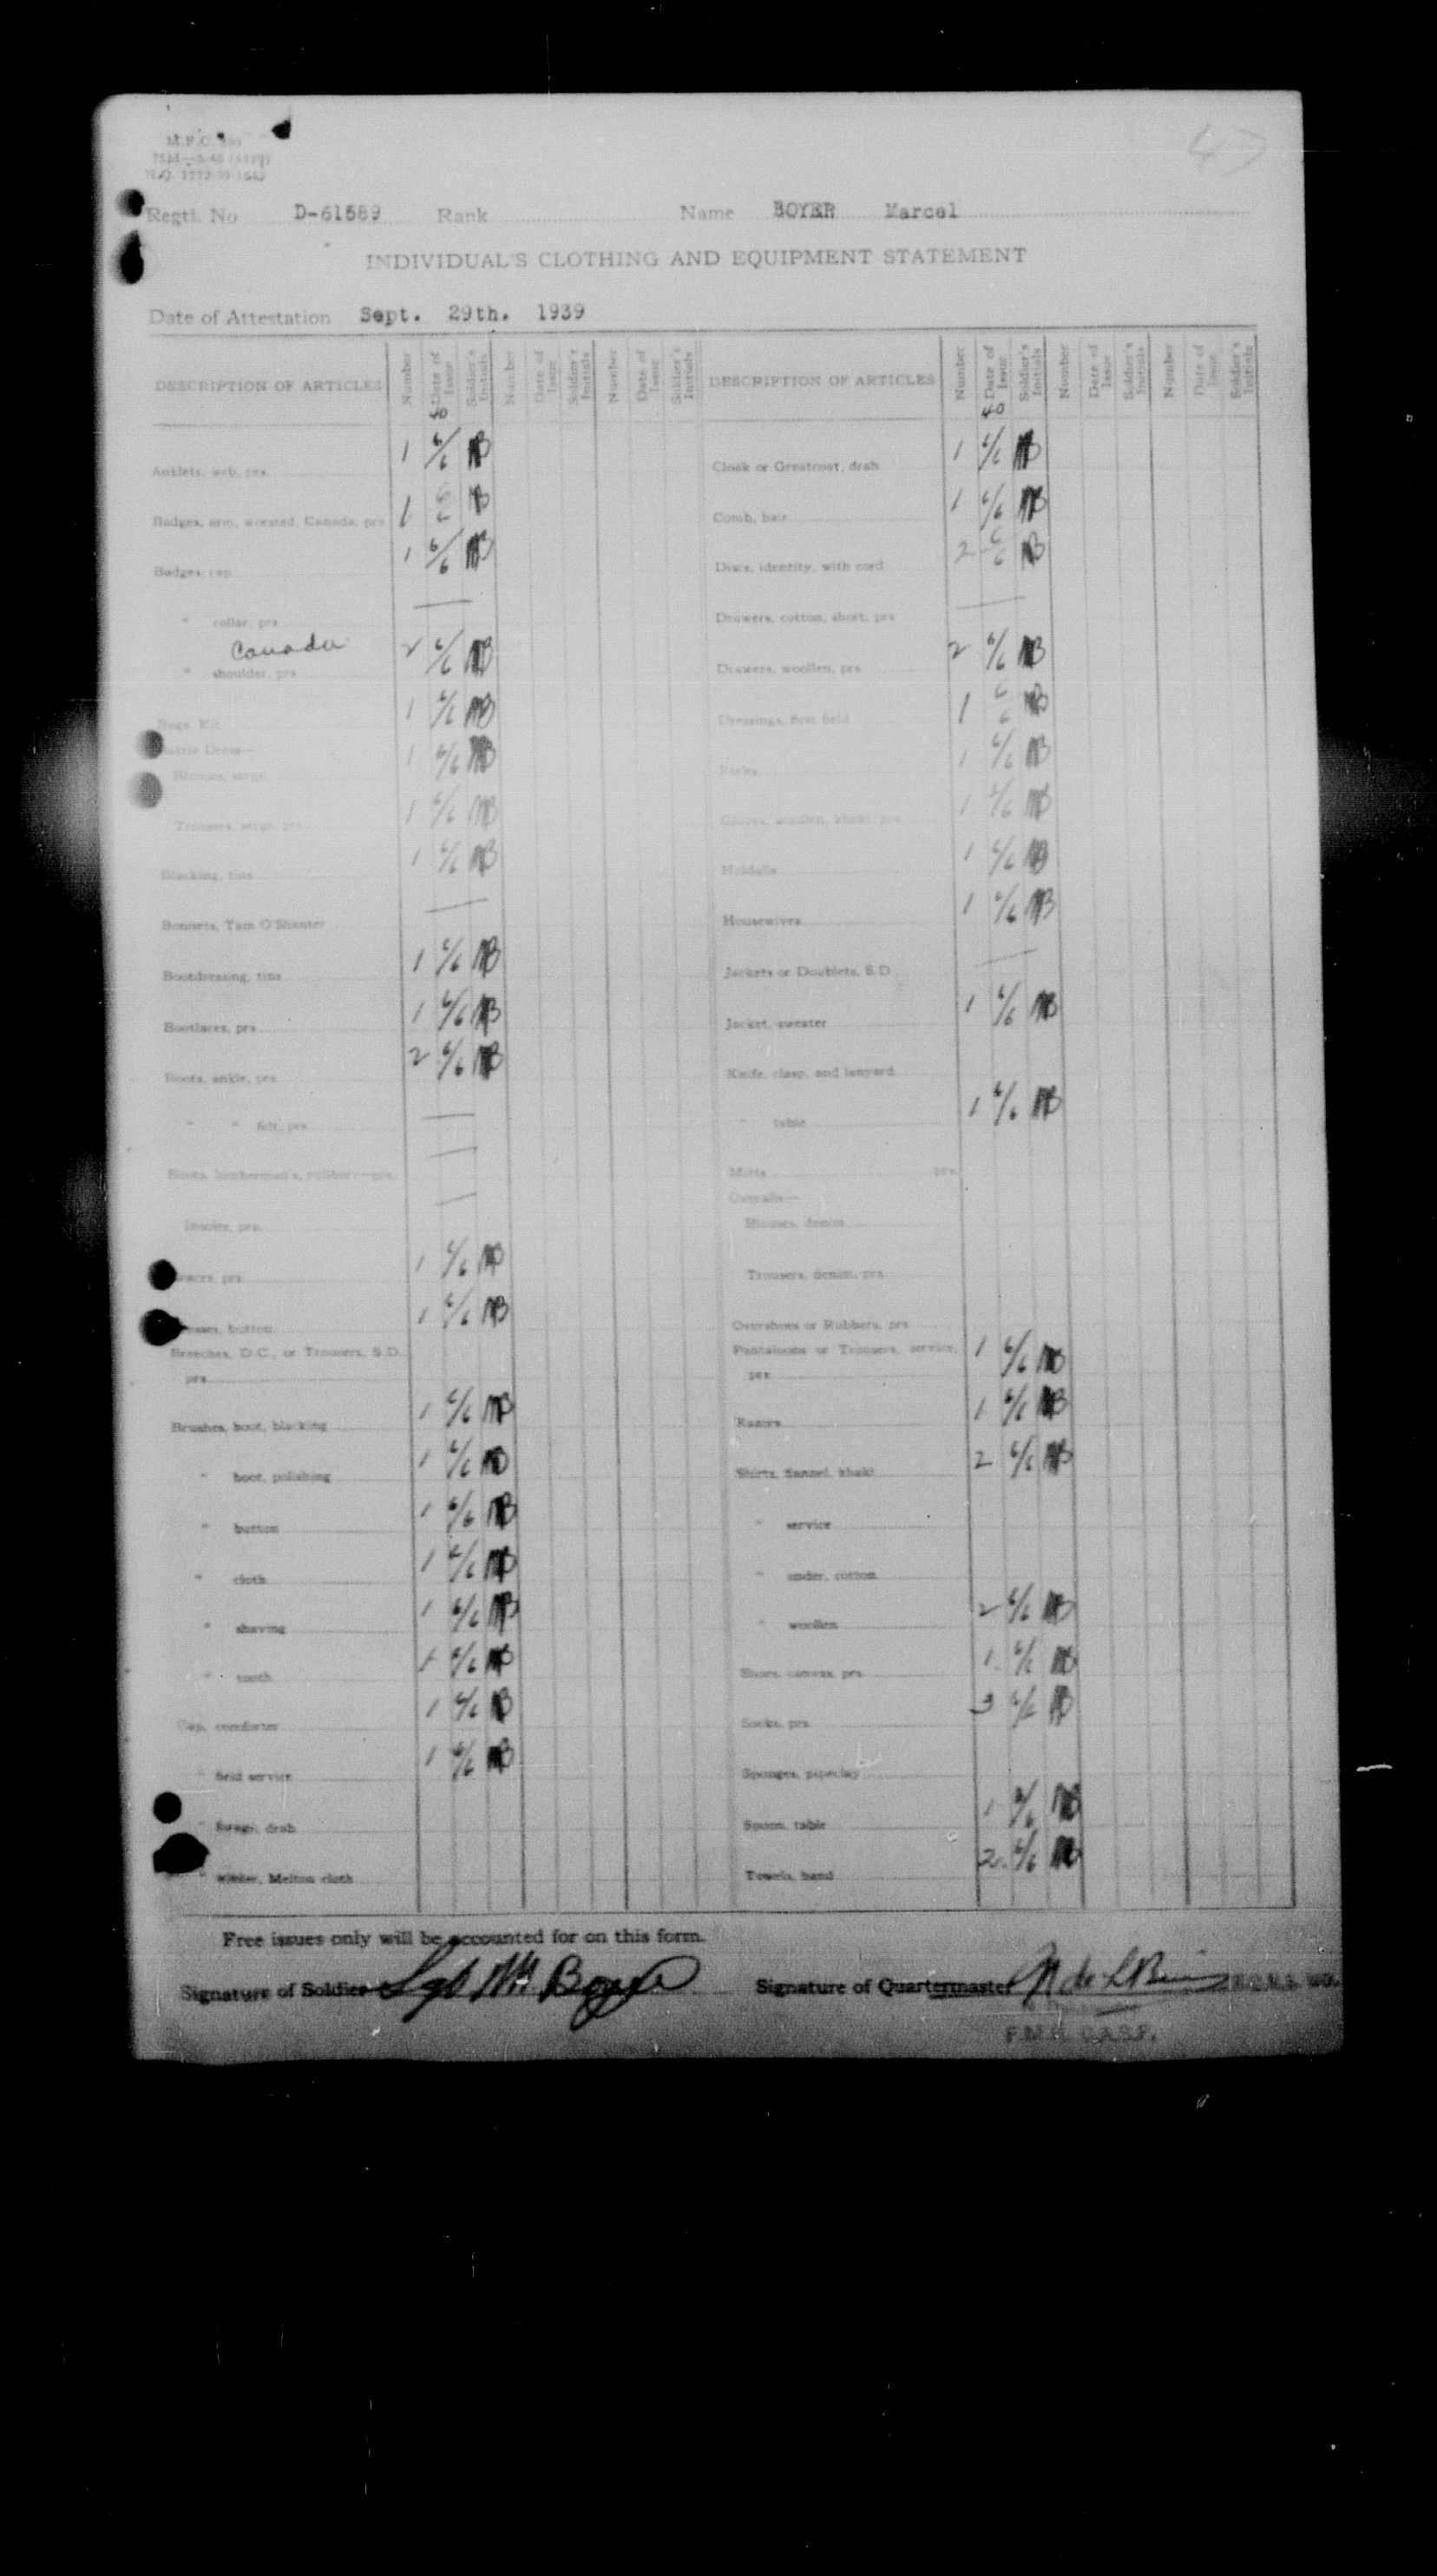 M.F.C.
75M—3-40
H.Q. 1772-39-1643
47
Regtl. No D-61589 Rank Name BOYER Marcel
INDIVIDUAL'S CLOTHING AND EQUIPMENT STATEMENT
Date of Attestation Sept. 29th. 1939
DESCRIPTION OF ARTICLES Number Date of Issue Soldier's Initials Number Date of Issue Soldier's Initials Number Date of Issue Soldier's Initials DESCRIPTION OF ARTICLES Number Date of Issue Soldier's Initials Number Date of Issue Soldier's Initials Number Date of Issue Soldier's Initials
40 40
Anklets, web, prs 1 6/6 MB Cloak or Greatcoat, drab 1 6/6 MB
Badges, arm, worsted, Canada, prs 1 6/6 MB Comb, hair 1 6/6 MB
Badges, cap 1 6/6 MB Discs, identity, with cord 2 6/6 MB
" collar, prs — Drawers, cotton, short, prs —
Canada
" shoulder, prs 2 6/6 MB Drawers, woollen, prs 2 6/6 MB
Bags, Kit 1 6/6 MB Dressings, first field 1 6/6 MB
Battle Dress—
Blouses, serge 1 6/6 MB Forks 1 6/6 MB
Trousers, serge, prs 1 6/6 MB Gloves, woollen, khaki, prs 1 6/6 MB
Blacking, tins 1 6/6 MB Holdalls 1 6/6 MB
Bonnets, Tam O'Shanter — Housewives 1 6/6 MB
Bootdressing, tins 1 6/6 MB Jackets or Doublets, S.D. —
Bootlaces, prs 1 6/6 MB Jacket, sweater 1 6/6 MB
Boots, ankle, prs 2 6/6 MB Knife, clasp, and lanyard
" " felt, prs — " table 1 6/6 MB
Boots, lumbermen's, rubber prs — Mitts prs
Overalls—
Insoles, prs — Blouses, denim
Braces, prs 1 6/6 MB Trousers, denim, prs
Brasses, button 1 6/6 MB Overshoes or Rubbers, prs
Breeches, D.C., or Trousers, S.D., prs Pantaloons or Trousers, service, prs 1 6/6 MB
Brushes, boot, blacking 1 6/6 MB Razors 1 6/6 MB
" boot, polishing 1 6/6 MB Shirts, flannel, khaki 2 6/6 MB
" button 1 6/6 MB " service
" cloth 1 6/6 MB " under, cotton
" shaving 1 6/6 MB " woollen 2 6/6 MB
" tooth 1 6/6 MB Shoes, canvas, prs 1 6/6 MB
Cap, comforter 1 6/6 MB Socks, prs 3 6/6 MB
" field service 1 6/6 MB Sponges, pipeclay
" forage, drab Spoon, table 1 6/6 MB
" winter, Melton cloth Towels, hand 2 6/6 MB
Free issues only will be accounted for on this form.
Signature of Soldier Sgt M Boyer Signature of Quartermaster
F.M.R. C.A.S.F.